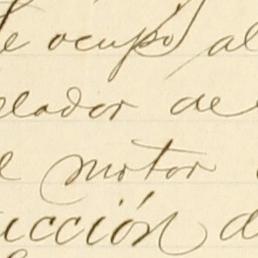 e ocupó al
elador de
el motor
ucción d